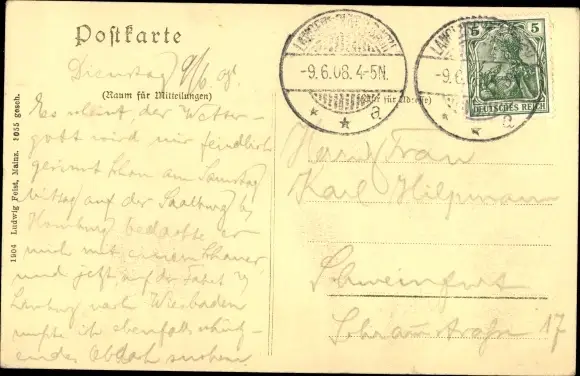 Postkarte
Dienstag 9/6 08.
(Raum für Mitteilungen)
Es scheint der Wetter-
gott wird mir feindlich
gesinnt schon am Samstag
Mittag auf der Saalburg b/
Homburg bedachte er
mich mit einem Schauer
und jetzt auf der Fahrt v/
Limburg nach Wiesbaden
mußte ich ebenfalls
Obdach suchen.
1904 Ludwig Feist, Mainz. 1055 gesch.
-9.6.08.4-5N.
* * a
für Adresse)
-9.6
* a
5 5
DEUTSCHES REICH
Frau
Karl Hilpmann
Schweinfurt
17